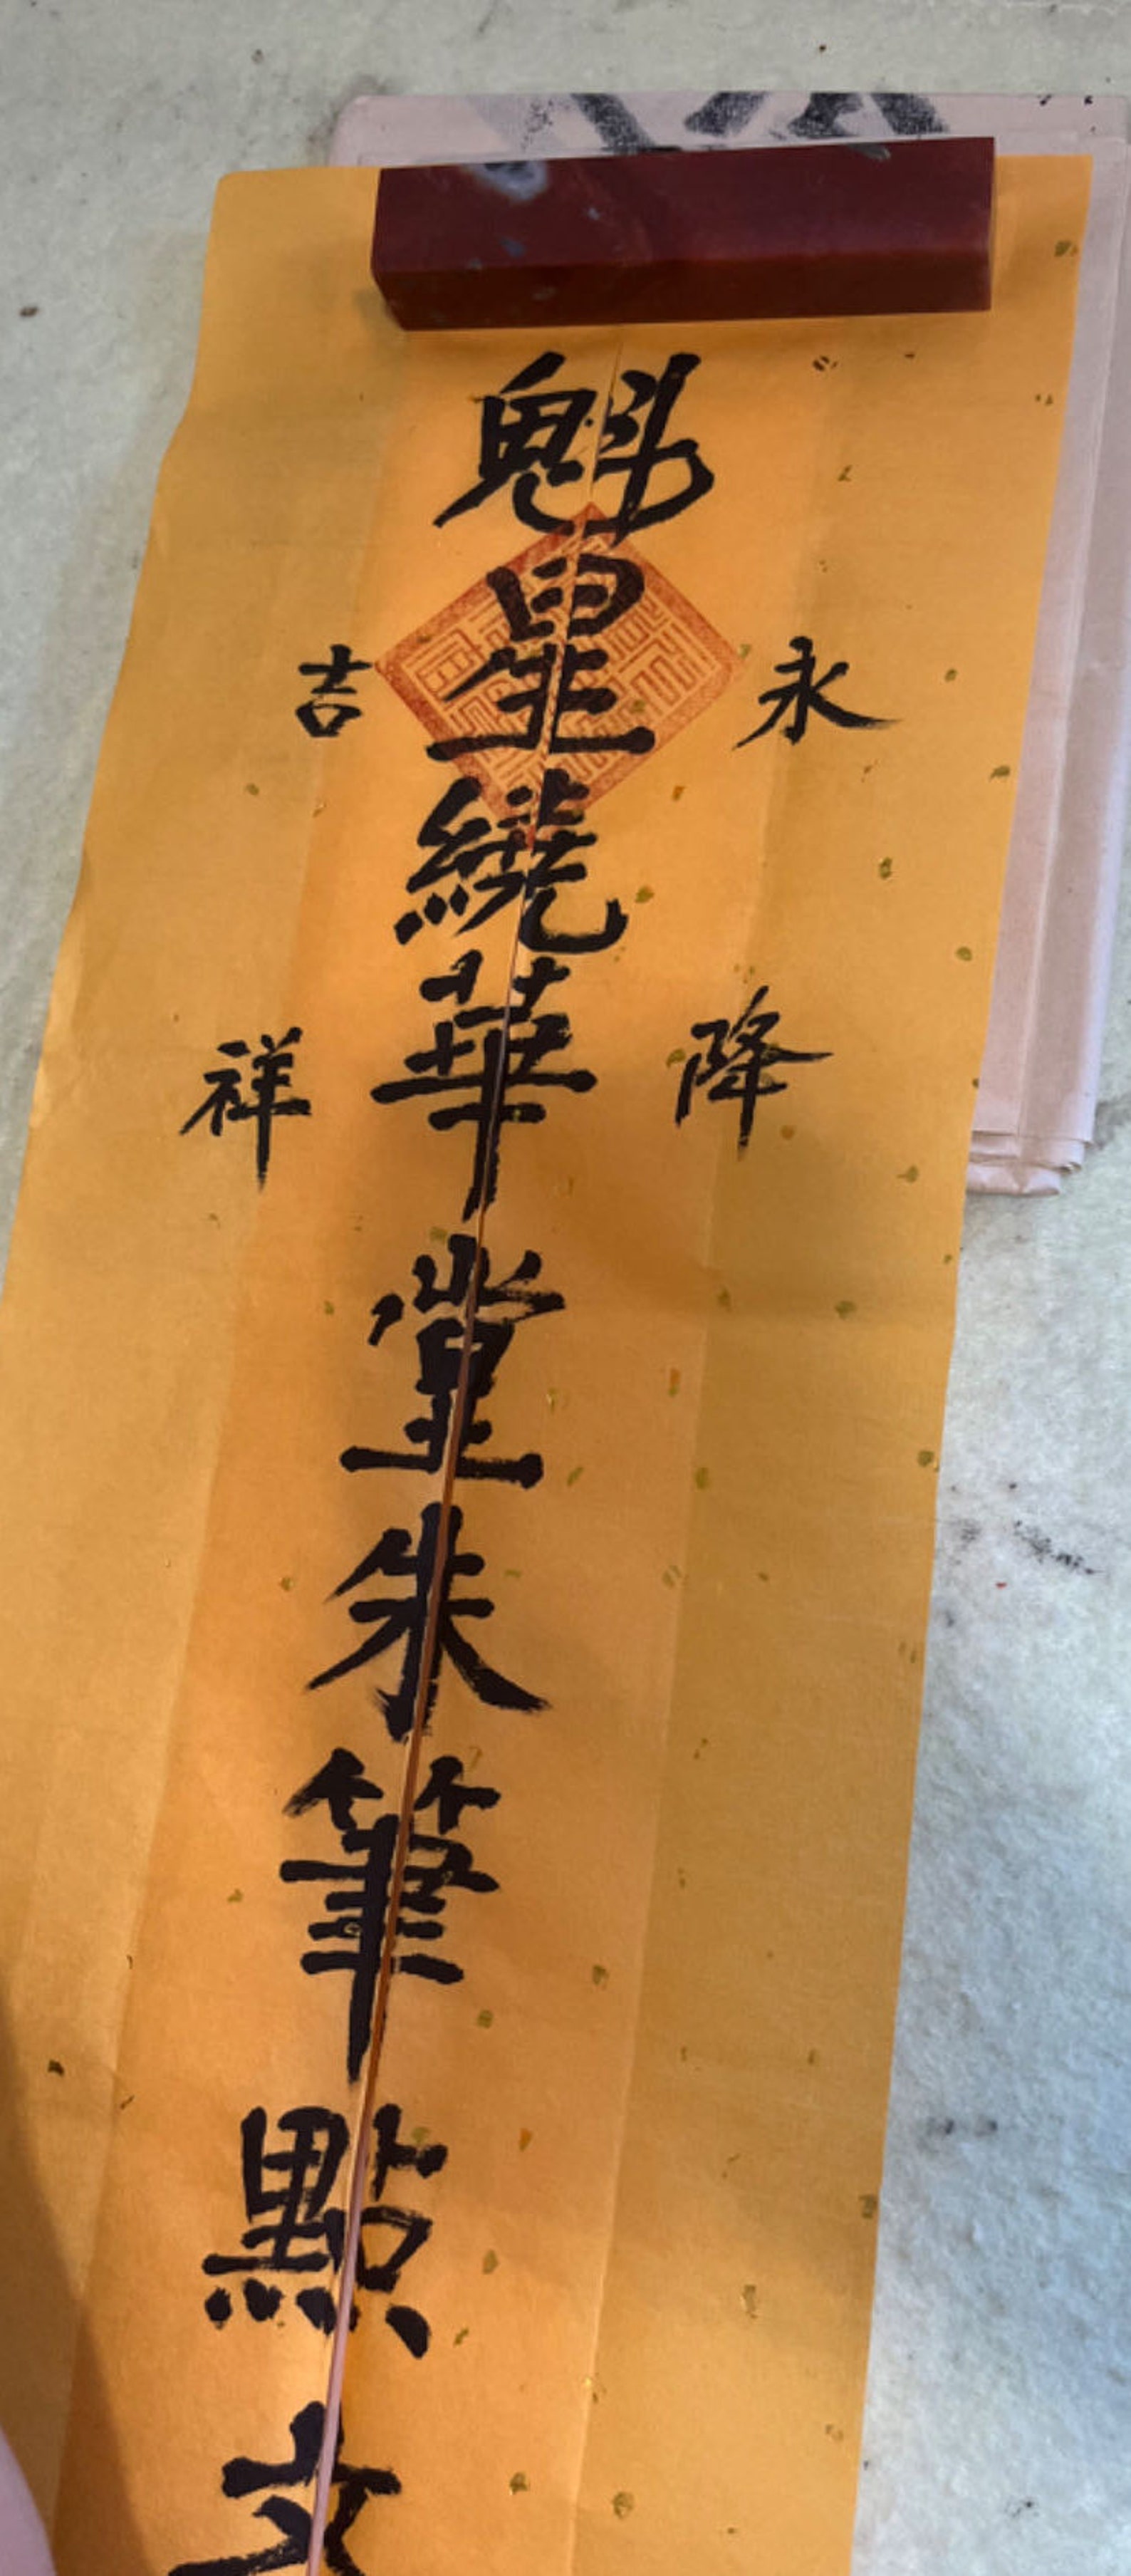 永降
魁星繞華堂朱筆點文
吉祥